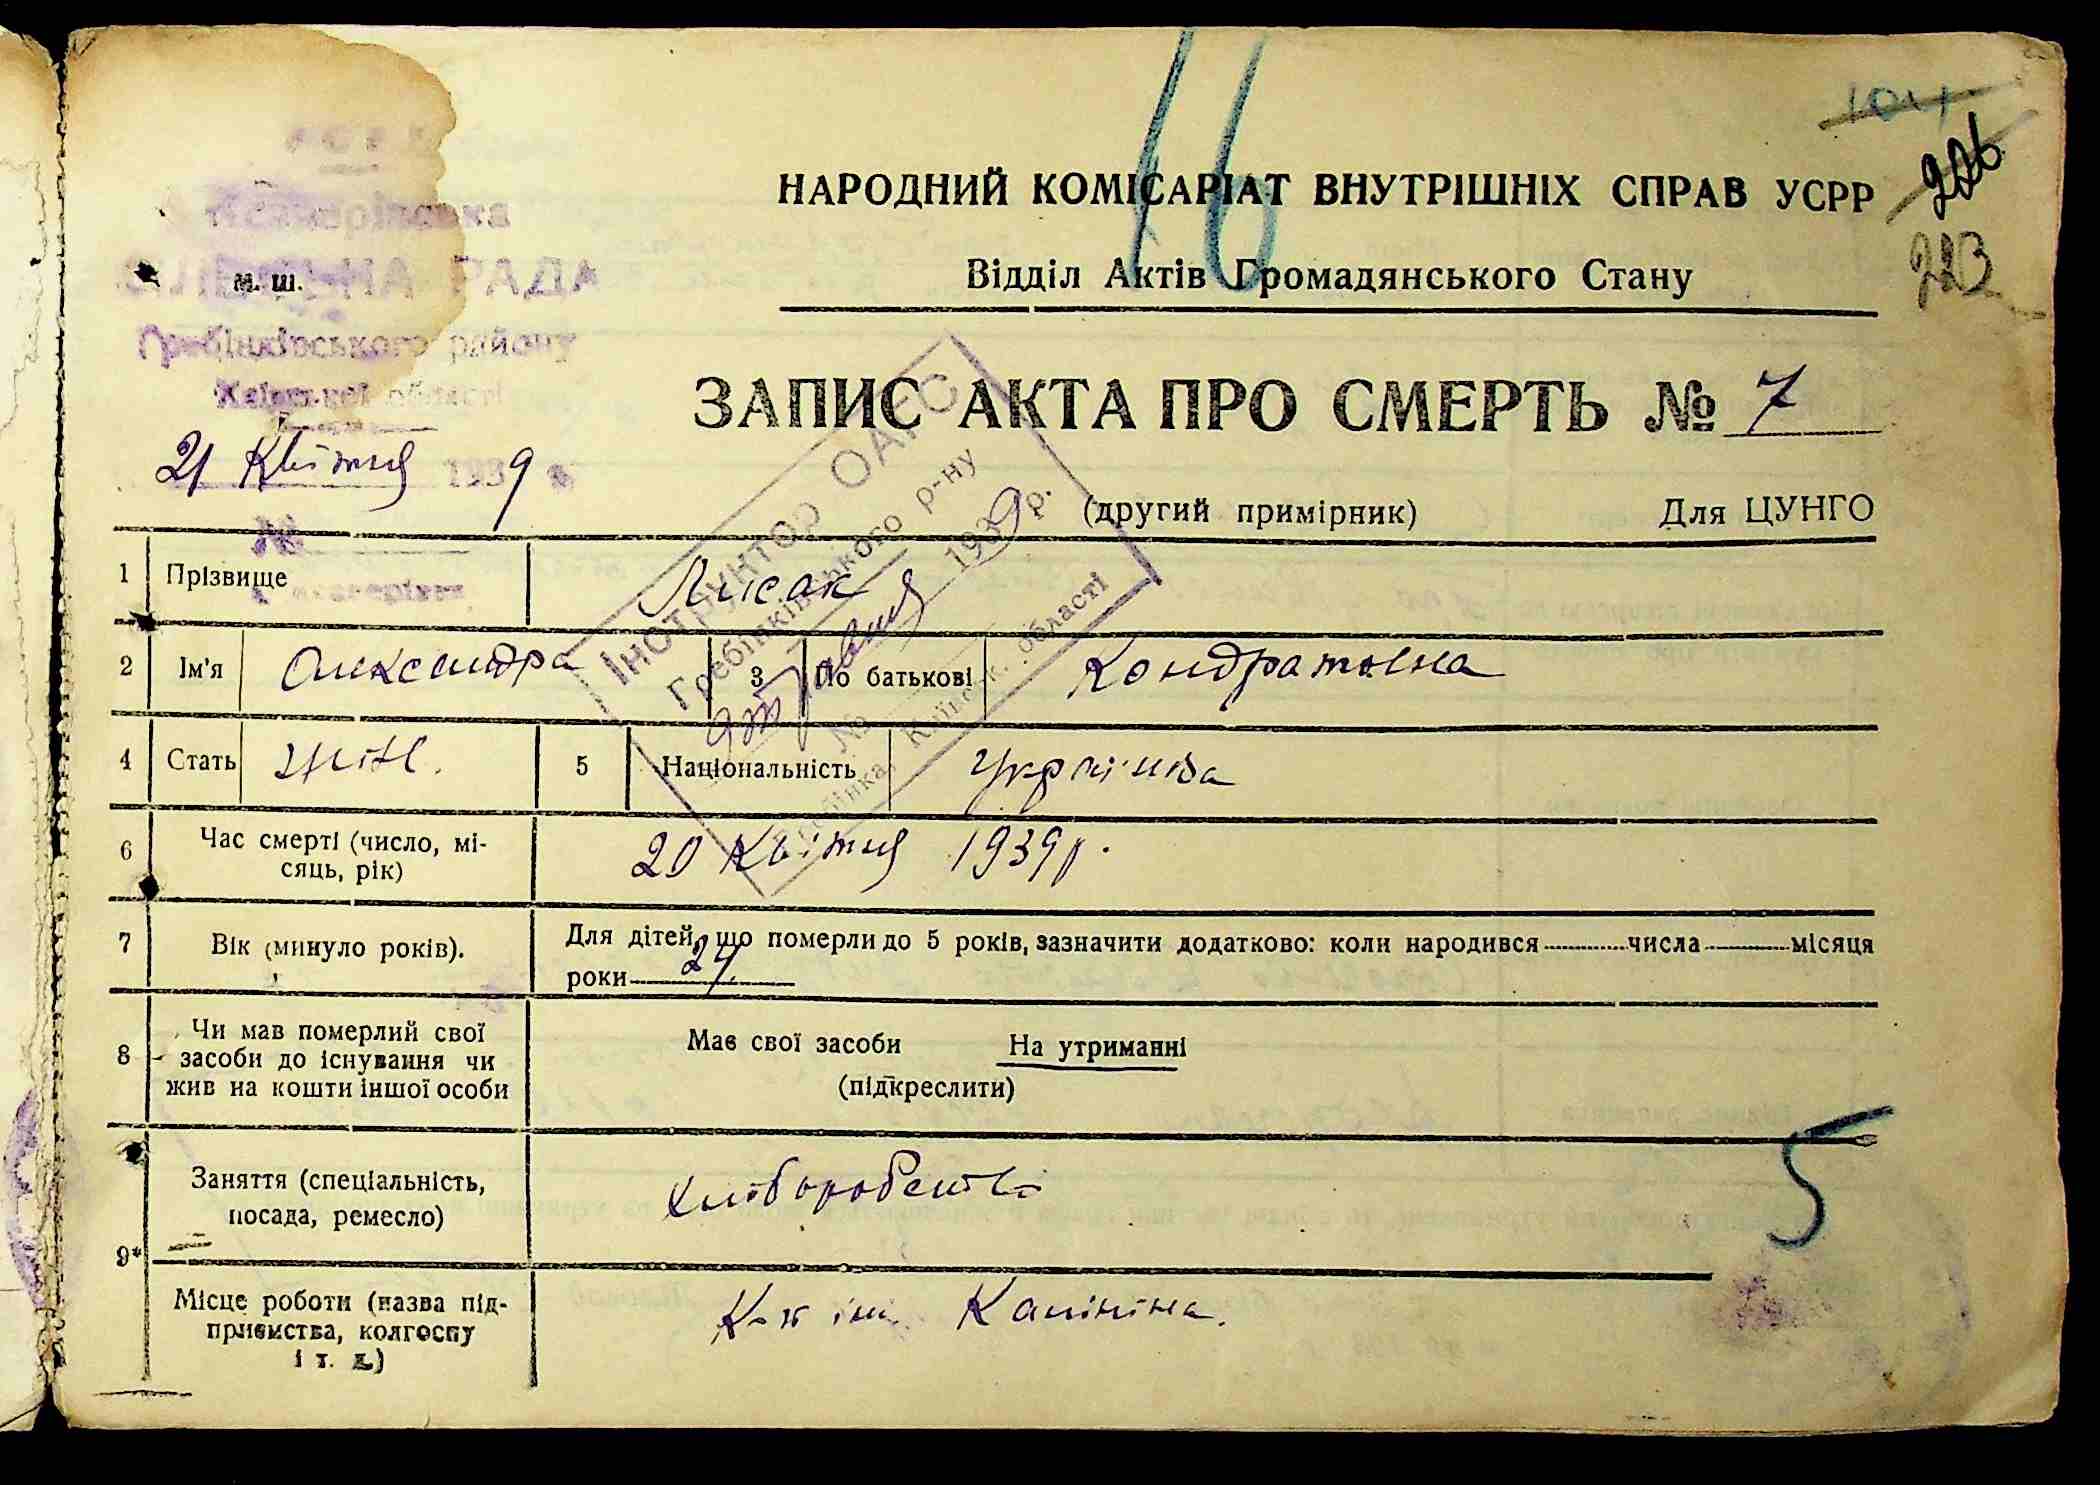 16
226
223
НАРОДНИЙ КОМІСАРІАТ ВНУТРІШНІХ СПРАВ УСРР
Відділ Актів Громадянського Стану
м. ш.
РАДА
Гребінківського району
Київської області
21 Квітня 1939
ЗАПИС АКТА ПРО СМЕРТЬ № 7
(другий примірник) Для ЦУНГО
Інструктор ОАГС
Гребінківського р-ну
1939 р.
№
Київськ. області
1 Прізвище Лисак
2 Ім'я Олександра 3 По батькові Кондратовна
4 Стать жін. 5 Національність Українка
6 Час смерті (число, мі-
сяць, рік) 20 Квітня 1939 р.
7 Вік (минуло років). Для дітей, що померли до 5 років, зазначити додатково: коли народився числа місяця
роки 24
8 Чи мав померлий свої
засоби до існування чи
жив на кошти іншої особи
Має свої засоби На утриманні
(підкреслити)
5
9* Заняття (спеціальність,
посада, ремесло)
Хліборобство
Місце роботи (назва під-
приємства, колгоспу
і т. д.)
К-п ім. Калініна.